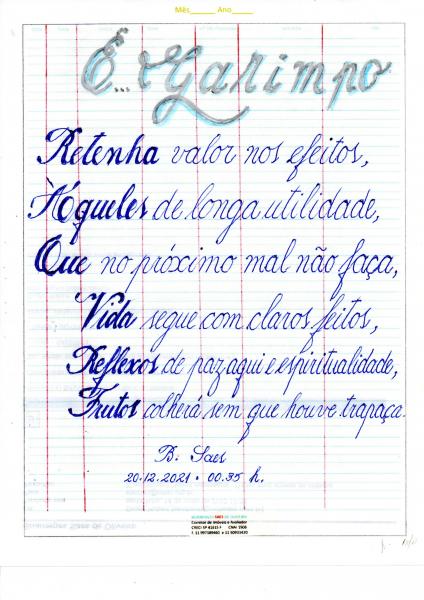 Mês______ Ano_____
É... Garimpo
Retenha valor nos efeitos,
Àqueles de longa utilidade,
Que no próximo mal não faça,
Vida segue com claros feitos,
Reflexos de paz aqui e espiritualidade,
Frutos colherá sem que houve trapaça.
B. Saes
20.12.2021 • 00:35 h.
SAES DE OLIVEIRA
Corretor de Imóveis e Avaliador